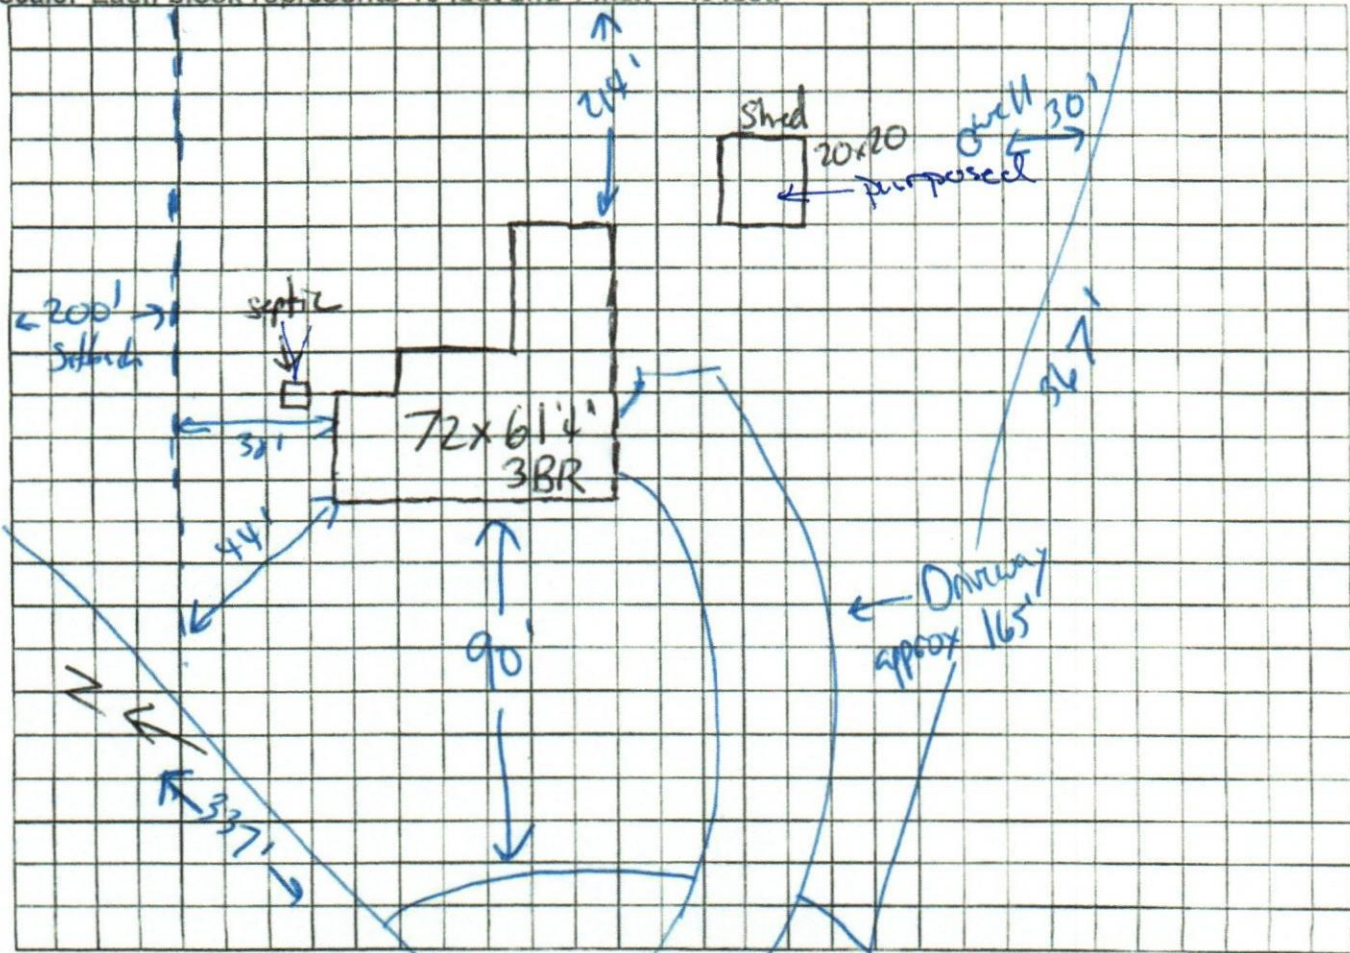 214'
Shed
20x20
well
30'
purposed
200'
Setback
septic
38'
72x61'4"
3BR
44'
367'
90'
Driveway
approx 165'
N
337'